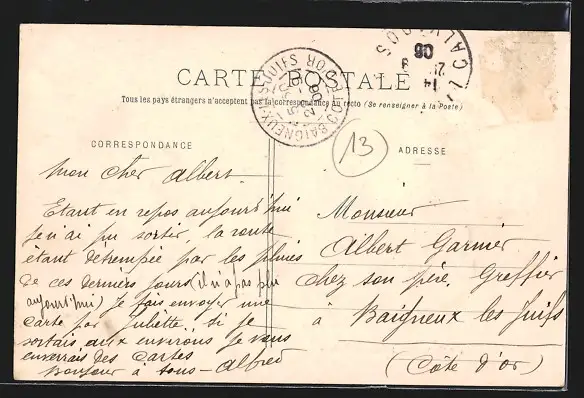 CARTE POSTALE
Tous les pays étrangers n'acceptent pas la correspondance au recto (Se renseigner à la Poste)
BAIGNEUX-LES-JUIFS
COTE D'OR
08
CALVADOS
14
08
13
CORRESPONDANCE
Mon cher Albert
Etant en repos aujourd'hui
je n'ai pu sortir, la route
étant détrempée par les pluies
de ces derniers jours (il n'a pas plu
aujourd'hui) Je fais envoyer une
carte par Juliette, si je
sortais aux environs je vous
enverrais des cartes
Bonjour à tous - Alfred
ADRESSE
Monsieur
Albert Garnier
chez son père, Greffier
à Baigneux les Juifs
(Côte d'or)